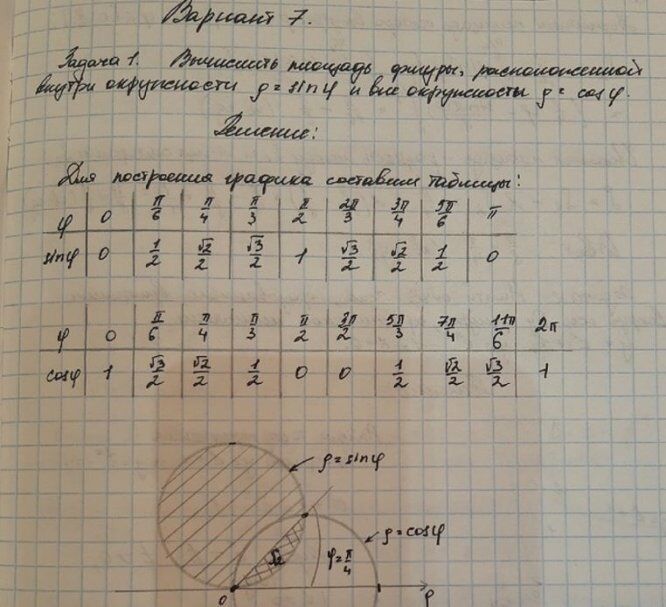 Вариант 7.
Задача 1. Вычислить площадь фигуры, расположенной
внутри окружности ρ = sinφ и вне окружности ρ = cosφ.
Решение:
Для построения графика составим таблицы:
φ 0 π/6 π/4 π/3 π/2 2π/3 3π/4 5π/6 π
sinφ 0 1/2 √2/2 √3/2 1 √3/2 √2/2 1/2 0
φ 0 π/6 π/4 π/3 π/2 3π/2 5π/3 7π/4 11π/6 2π
cosφ 1 √3/2 √2/2 1/2 0 0 1/2 √2/2 √3/2 1
ρ=sinφ
ρ=cosφ
φ=π/4
0 ρ